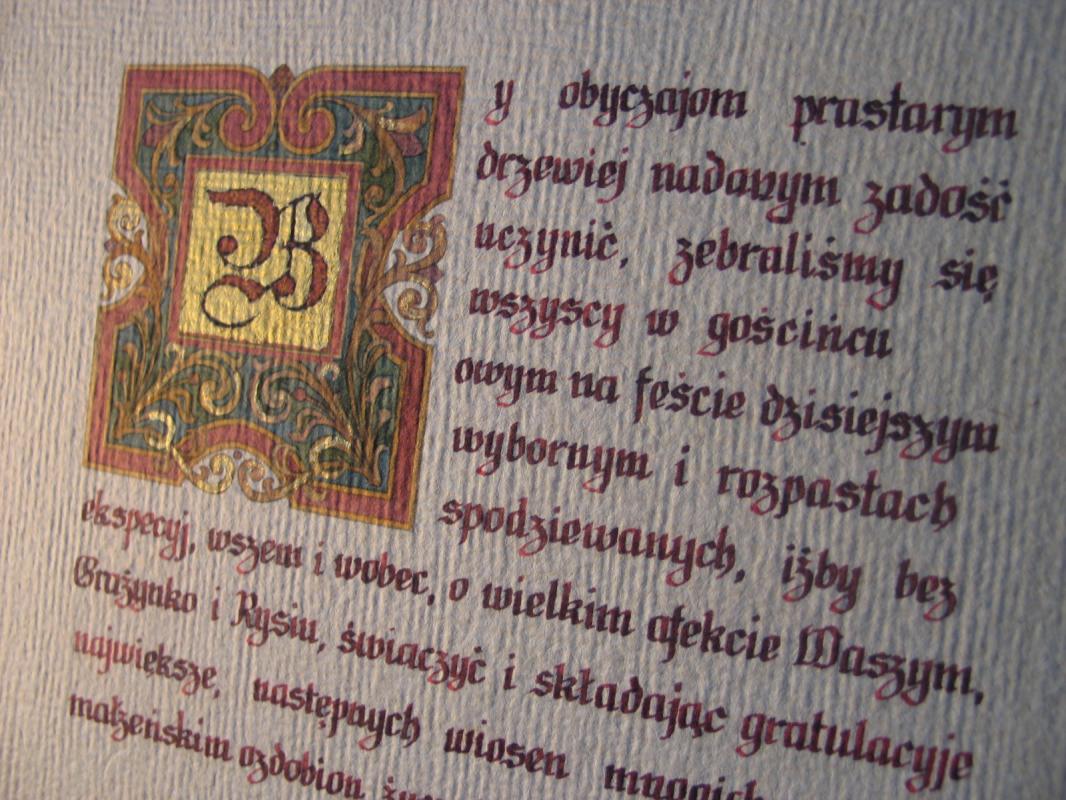 By obyczajom prastarym
drzewiej nadanym zadość
uczynić, zebraliśmy się
wszyscy w gościńcu
owym na feście dzisiejszym
wybornym i rozpastach
spodziewanych, iżby bez
ekspecyj, wszem i wobec, o wielkim afekcie Waszym,
Grażynko i Rysiu, świaczyć i składając gratulacyje
największe, następnych wiosen mnogich
małżeńskim ozdobion